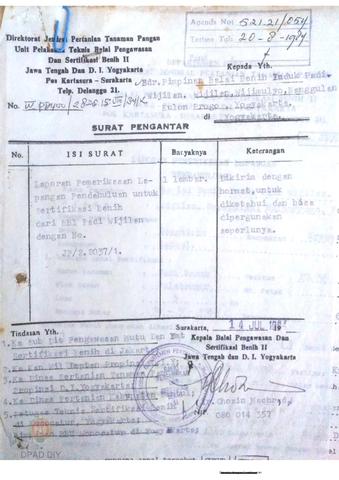 Agenda No: 521.21/054
Terima Tgl: 20-8-1984
Direktorat Jenderal Pertanian Tanaman Pangan
Unit Pelaksana Teknis Balai Pengawasan
Dan Sertifikasi Benih II
Jawa Tengah Dan D. I. Yogyakarta
Pos Kartasura - Surakarta
Telp. Delanggu 21.
No.
Kepada Yth.
Sdr. Pimpinan Balai Benih Induk Padi
Wijilan, Wijilan, Wijimulyo, Nanggulan
Kulon Progo, Yogyakarta.
di Yogyakarta.
SURAT PENGANTAR
No. ISI SURAT Banyaknya Keterangan
Laporan Pemeriksaan La- 1 lembar. Dikirim dengan
pangan Pendahuluan untuk hormat, untuk
Sertifikasi Benih diketahui dan bisa
dari BBI Padi Wijilan dipergunakan
dengan No. seperlunya.
JP/2.0037/1.
Tindasan Yth. Surakarta, 14 JUL
Kepala Balai Pengawasan Dan
Sertifikasi Benih II
Jawa Tengah Dan D. I. Yogyakarta
1. Ka Sub Dit Pengawasan Mutu Dan
Sertifikasi Benih di Jakarta
2. Ka Kan Wil Deptan
3. Ka Dinas Pertanian
Propinsi D.I. Yogyakarta;
4. Ka Dinas Pertanian Kabupaten
5. Petugas Teknis Sertifikasi Benih
di Yogyakarta;
di Yogyakarta;
NIP. 080 014 357
DPAD DIY